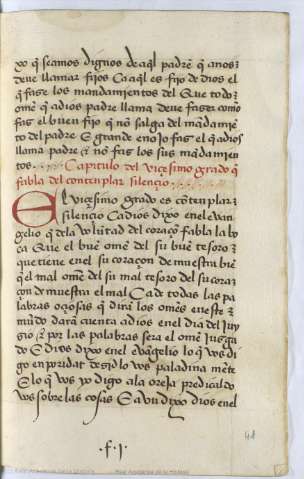 xo q̃ seamos dignos de aq̃l padre q̃ a nos
deue llamar fijos Ca aq̃l es fijo de dios el
q̃ fase los mandamientos del E que todo
ome q̃ a dios padre llama deue faser como
fas el buen fijo q̃ nõ salga del mãdamiẽ
to del padre E grande enojo fas el q̃ a dios
llama padre & nõ fas los sus mãdamien
tos Capitulo del viçesimo grado q̃
fabla del contenplar silençio
El viçesimo grado es cõtenplar
silencio Ca dios dixo en el euan
gelio q̃ de la volũtad del coraçõ fabla la bo
ca Que el buẽ ome del su buẽ tesoro
que tiene en el su coraçon demuestra biẽ
q̃ el mal ome del su mal tesoro del su cora
çon demuestra el mal Ca de todas las pa
labras oçiosas q̃ dirã los omes en este
mũdo darã cuenta a dios en el dia del juy
sio & por las palabras sera el ome jusga
do E dios dixo en el euãgelio lo q̃ vos di
go en poridat desid lo vos paladina mẽte
E lo q̃ vos yo digo a la oreja predicaldo
vos sobre las cosas E aun dixo dios en el
.f.j.
48